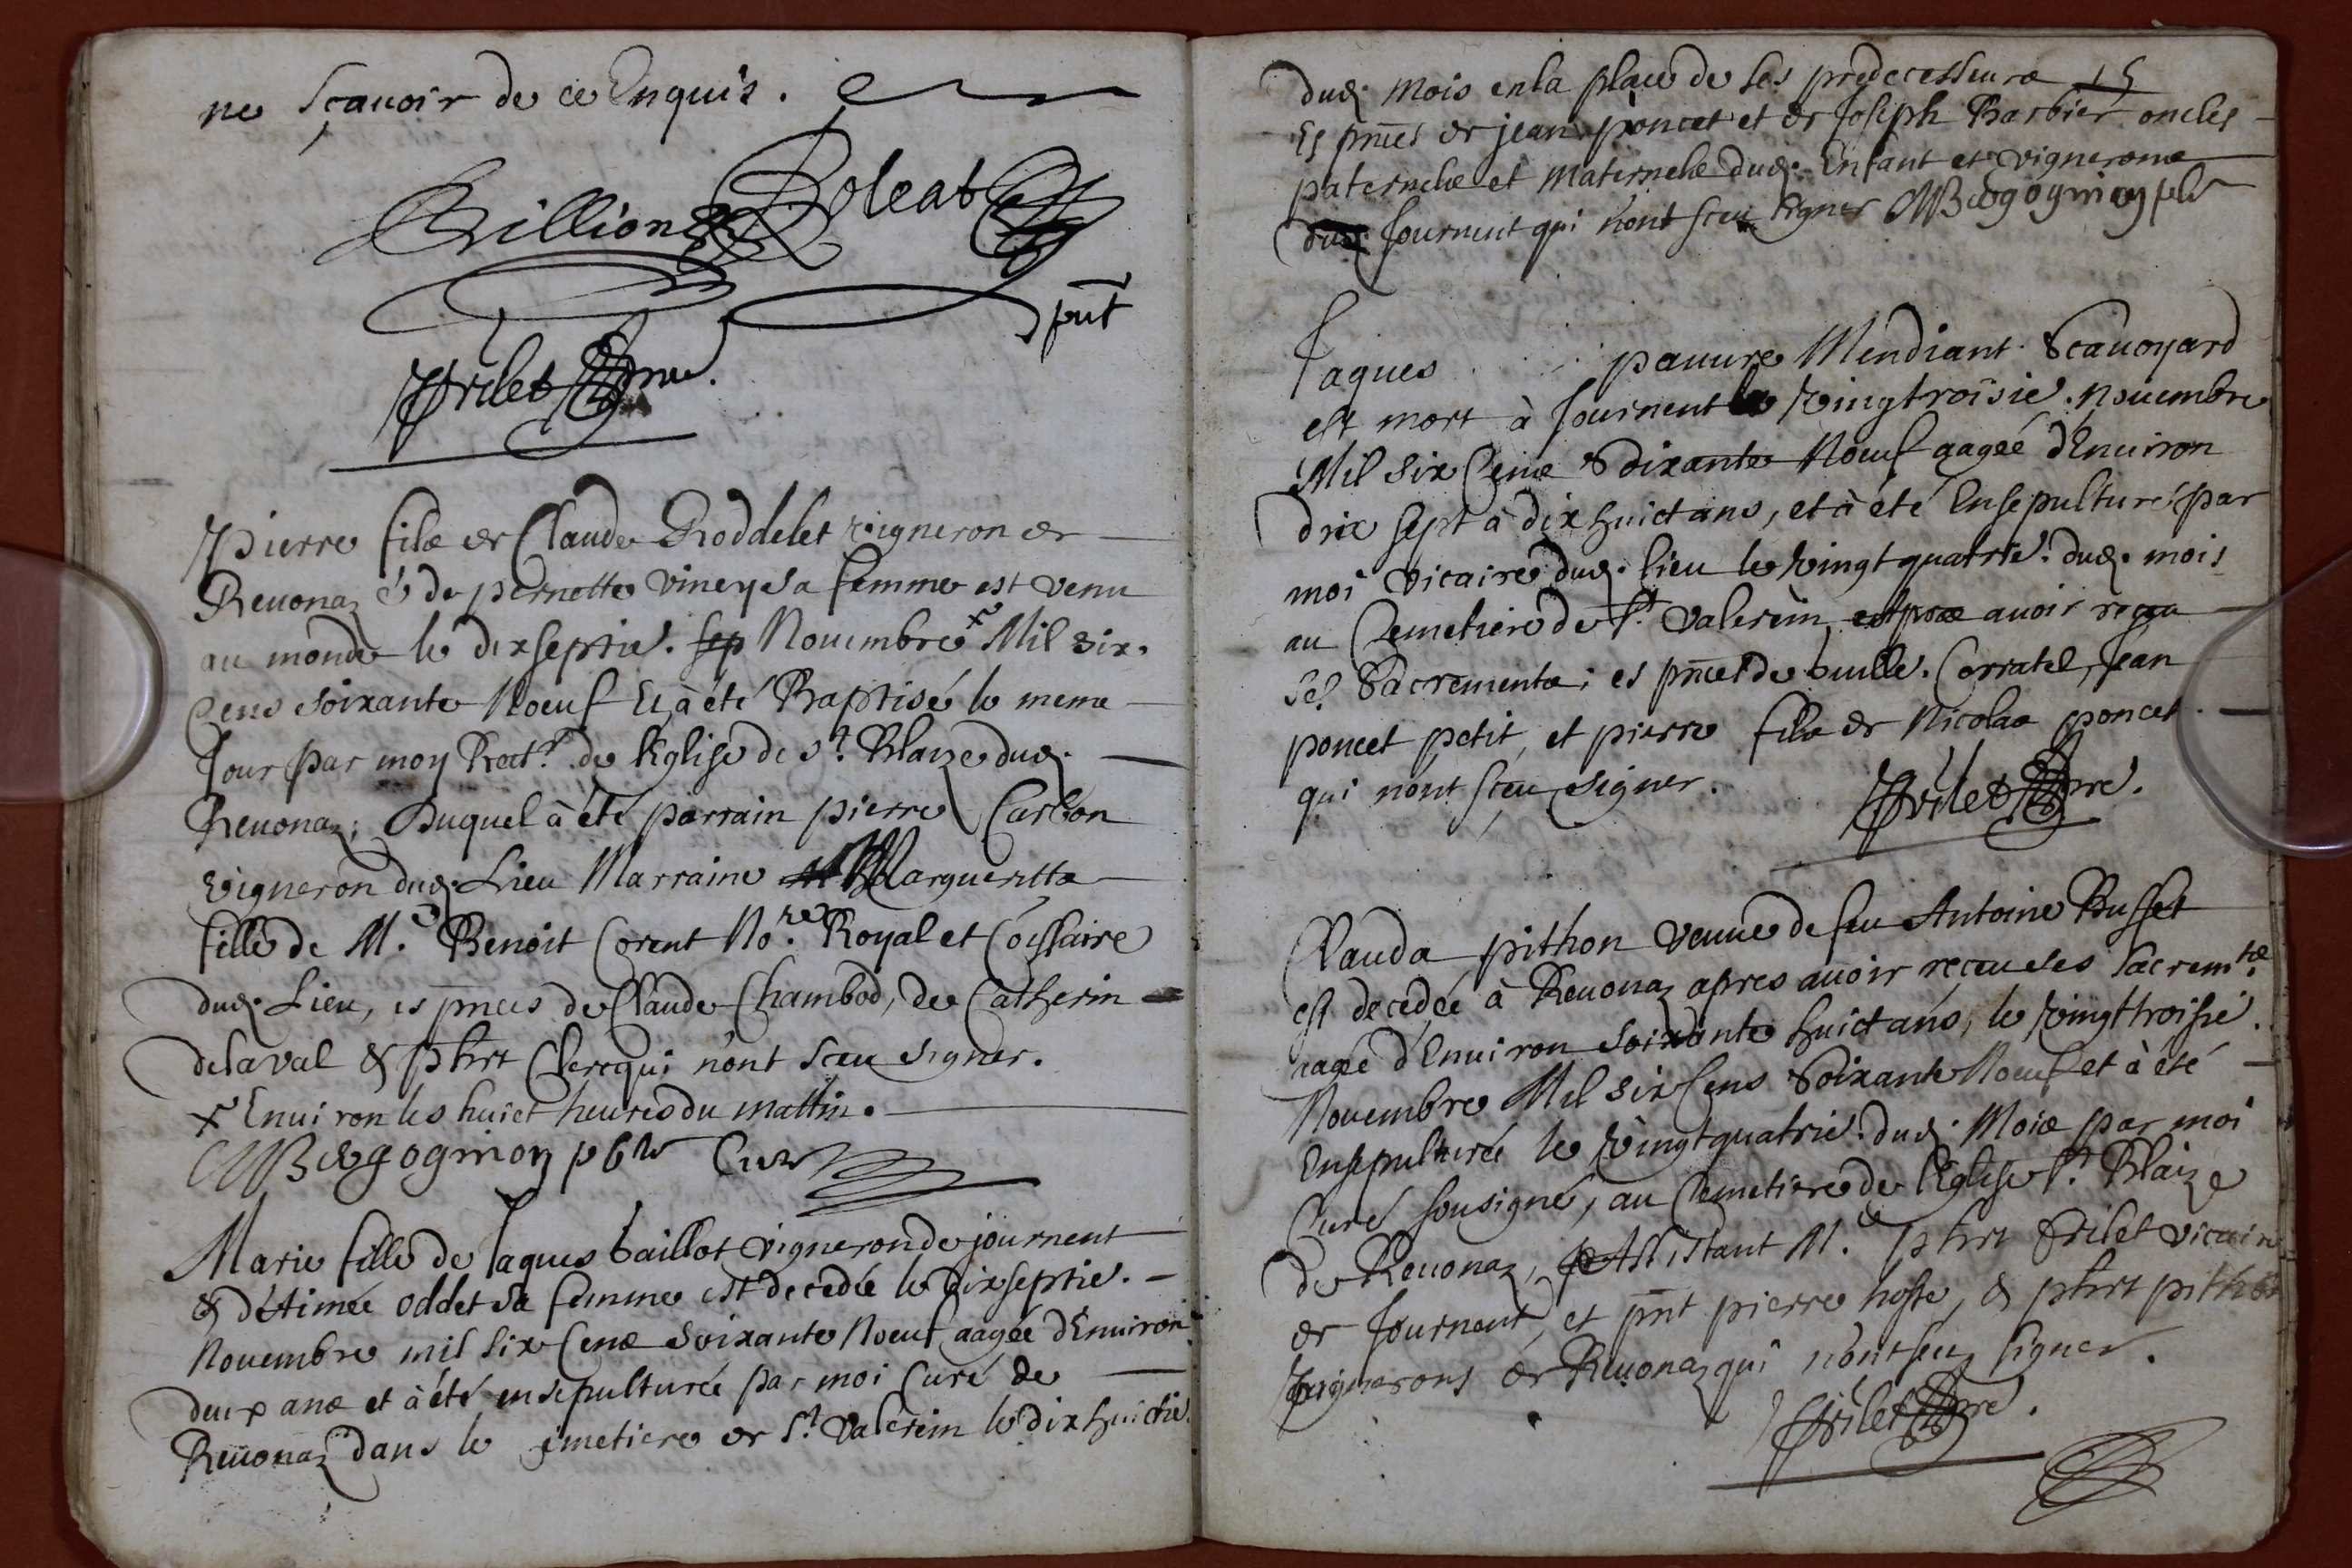 ne sçauoir de ce Enquis.
Brillion Poleat
pnt
Frilet pre.
Pierre filz de Claude Roddelet vigneron de
Reuonaz & de pernette viney sa femme est venu
au monde le dixseptie. sep Nouembre x Mil six.
Cens soixante Noeuf Et à été Baptisé le meme
Jour par moy Rectr. de l'Eglise de St. Blaize dud.
Reuonaz; Duquel à été parrain pierre Carbon
vigneron dud. Lieu Marraine Margueritte
fille de M.e Benoit Corent No.re Royal et Coissaire
dud. Lieu, es pnces de Claude Chambod, de Catherin
delaval & phrt Clerc qui n'ont sceu signer.
x Enuiron les huict heures du mattin.
Bergogmon pbre Curé
Marie fille de Jaques baillot vigneron de journent
& d'Aimée oddet sa femme est decedée le dixseptie.
Nouembre mil six Cens soixante Noeuf aagée d'Enuiron
deux ans et à été ensepulturée par moi Curé de
Reuonaz dans le cimetiere de St. Valerein le dix huictie.
dud. mois en la place de ses predecesseurs 15
Es pnces de jean poncet et de Joseph Barbier oncles
paternelz et maternelz dud. Enfant et vignerons
dud. Journent qui n'ont sceu signer Bergogmon pbr
Jaques pauure Mendiant Scauoyard
est mort à Journent le vingtroisie. nouembre
Mil six Cens Soixante Noeuf aagée d'Enuiron
dix sept à dix huict ans, et à été Ensepulturé par
moi vicaire dud. lieu le vingt quatrie. dud. mois
au Cemetiere de St. Valerein, apres auoir receu
ses Sacrements; es pnces de Guille. Corratel, Jean
poncet petit, et pierre filz de Nicolas poncet
qui n'ont sceu signer. Frilet pre.
Clauda pithon veuue de feu Antoine Busset
est decedée à Reuonaz apres auoir receu ses Sacremts.
aagée d'Enuiron soixante huict ans, le vingttroisie.
Nouembre Mil six Cens Soixante Noeuf et à été
Ensepulturée le vingtquatrie. dud. Mois par moi
Curé sousigné, au Cemetiere de l'Eglise St. Blaize
de Reuonaz, Assistant M.e phrt Frilet vicaire
de Journent, et pnt pierre hoste, & phrt pithon
vignerons de Reuonaz qui n'ont sceu signer.
Frilet pre.